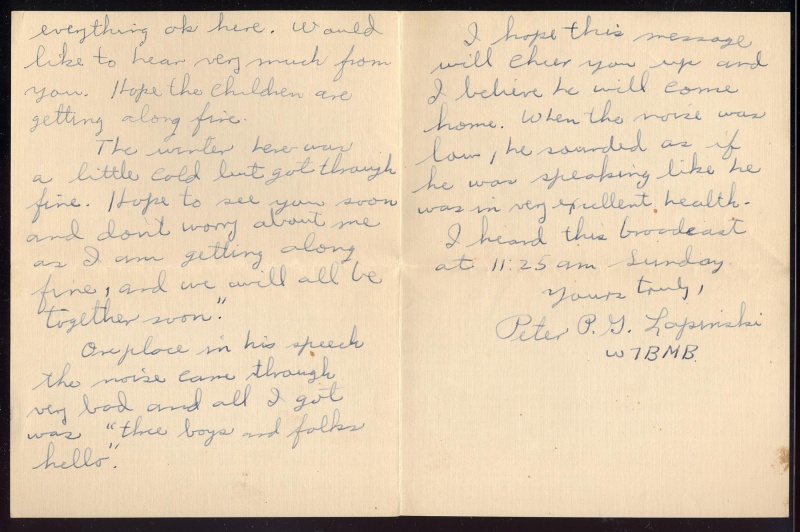 everything ok here. Would
like to hear very much from
you. Hope the children are
getting along fine.
The winter here was
a little cold but got through
fine. Hope to see you soon
and don't worry about me
as I am getting along
fine, and we will all be
together soon."
One place in his speech
the noise came through
very bad and all I got
was "three boys and folks
hello".
I hope this message
will cheer you up and
I believe he will come
home. When the noise was
low, he sounded as if
he was speaking like he
was in very excellent health.
I heard this broadcast
at 11:25 am Sunday.
Yours truly,
Peter P. G. Lapinski
W7BMB.